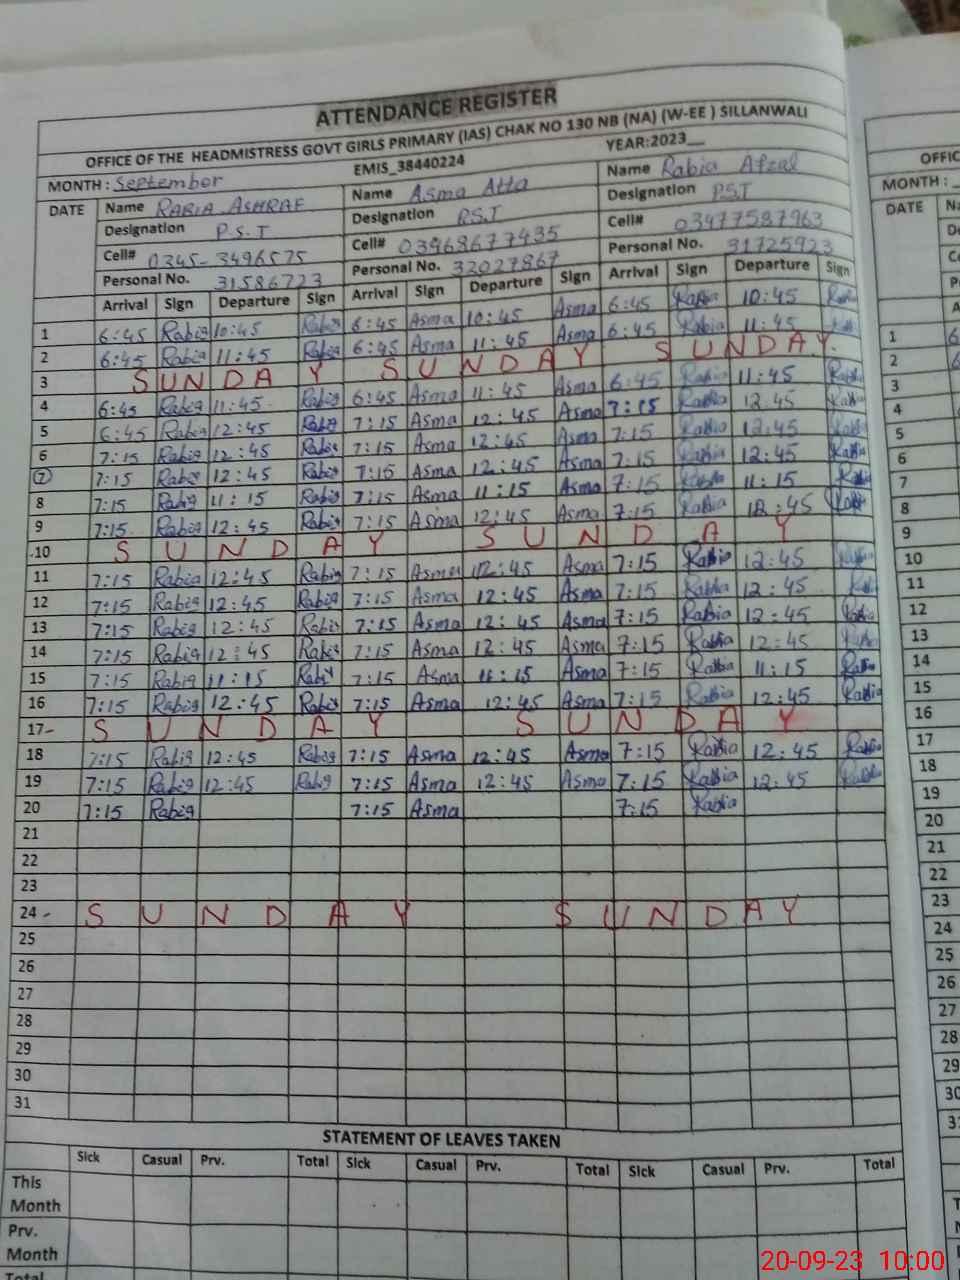 ATTENDANCE REGISTER
OFFICE OF THE HEADMISTRESS GOVT GIRLS PRIMARY (IAS) CHAK NO 130 NB (NA) (W-EE ) SILLANWALI
MONTH : September EMIS_38440224 YEAR:2023__
DATE Name RABIA ASHRAF Name Asma Atta Name Rabia Afzal
Designation P.S.T Designation P.S.T Designation P.S.T
Cell# 0345-3496575 Cell# 03468677435 Cell# 03477587963
Personal No. 31586723 Personal No. 32027867 Personal No. 31725923
Arrival Sign Departure Sign Arrival Sign Departure Sign Arrival Sign Departure Sign
1 6:45 Rabia 10:45 Rabia 6:45 Asma 10:45 Asma 6:45 Rabia 10:45 Rabia
2 6:45 Rabia 11:45 Rabia 6:45 Asma 11:45 Asma 6:45 Rabia 11:45
3 SUNDAY SUNDAY SUNDAY.
4 6:45 Rabia 11:45 Rabia 6:45 Asma 11:45 Asma 6:45 Rabia 11:45 Rabia
5 6:45 Rabia 12:45 Rabia 7:15 Asma 12:45 Asma 7:15 Rabia 12:45 Rabia
6 7:15 Rabia 12:45 Rabia 7:15 Asma 12:45 Asma 7:15 Rabia 12:45 Rabia
7 7:15 Rabia 12:45 Rabia 7:15 Asma 12:45 Asma 7:15 Rabia 12:45 Rabia
8 7:15 Rabia 11:15 Rabia 7:15 Asma 11:15 Asma 7:15 Rabia 11:15 Rabia
9 7:15 Rabia 12:45 Rabia 7:15 Asma 12:45 Asma 7:15 Rabia 12:45 Rabia
10 SUNDAY SUNDAY
11 7:15 Rabia 12:45 Rabia 7:15 Asma 12:45 Asma 7:15 Rabia 12:45 Rabia
12 7:15 Rabia 12:45 Rabia 7:15 Asma 12:45 Asma 7:15 Rabia 12:45
13 7:15 Rabia 12:45 Rabia 7:15 Asma 12:45 Asma 7:15 Rabia 12:45 Rabia
14 7:15 Rabia 12:45 Rabia 7:15 Asma 12:45 Asma 7:15 Rabia 12:45 Rabia
15 7:15 Rabia 11:15 Rabia 7:15 Asma 11:15 Asma 7:15 Rabia 11:15 Rabia
16 7:15 Rabia 12:45 Rabia 7:15 Asma 12:45 Asma 7:15 Rabia 12:45 Rabia
17- SUNDAY SUNDAY
18 7:15 Rabia 12:45 Rabia 7:15 Asma 12:45 Asma 7:15 Rabia 12:45 Rabia
19 7:15 Rabia 12:45 Rabia 7:15 Asma 12:45 Asma 7:15 Rabia 12:45 Rabia
20 7:15 Rabia 7:15 Asma 7:15 Rabia
21
22
23
24- SUNDAY SUNDAY
25
26
27
28
29
30
31
STATEMENT OF LEAVES TAKEN
Sick Casual Prv. Total Sick Casual Prv. Total Sick Casual Prv. Total
This
Month
Prv.
Month
Total
MONTH :
DATE
1
2
3
4
5
6
7
8
9
10
11
12
13
14
15
16
17
18
19
20
21
22
23
24
25
26
27
28
29
30
20-09-23 10:00